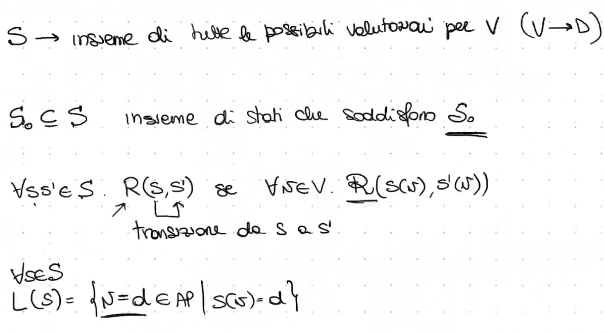 S → insieme di tutte le possibili valutazioni per V (V→D)
S₀ ⊆ S insieme di stati che soddisfano S₀
∀s,s'∈S. R(s,s') se ∀v∈V. R(s(v), s'(v))
transizione da s a s'
∀s∈S
L(s)= {v=d ∈ AP | s(v)=d}